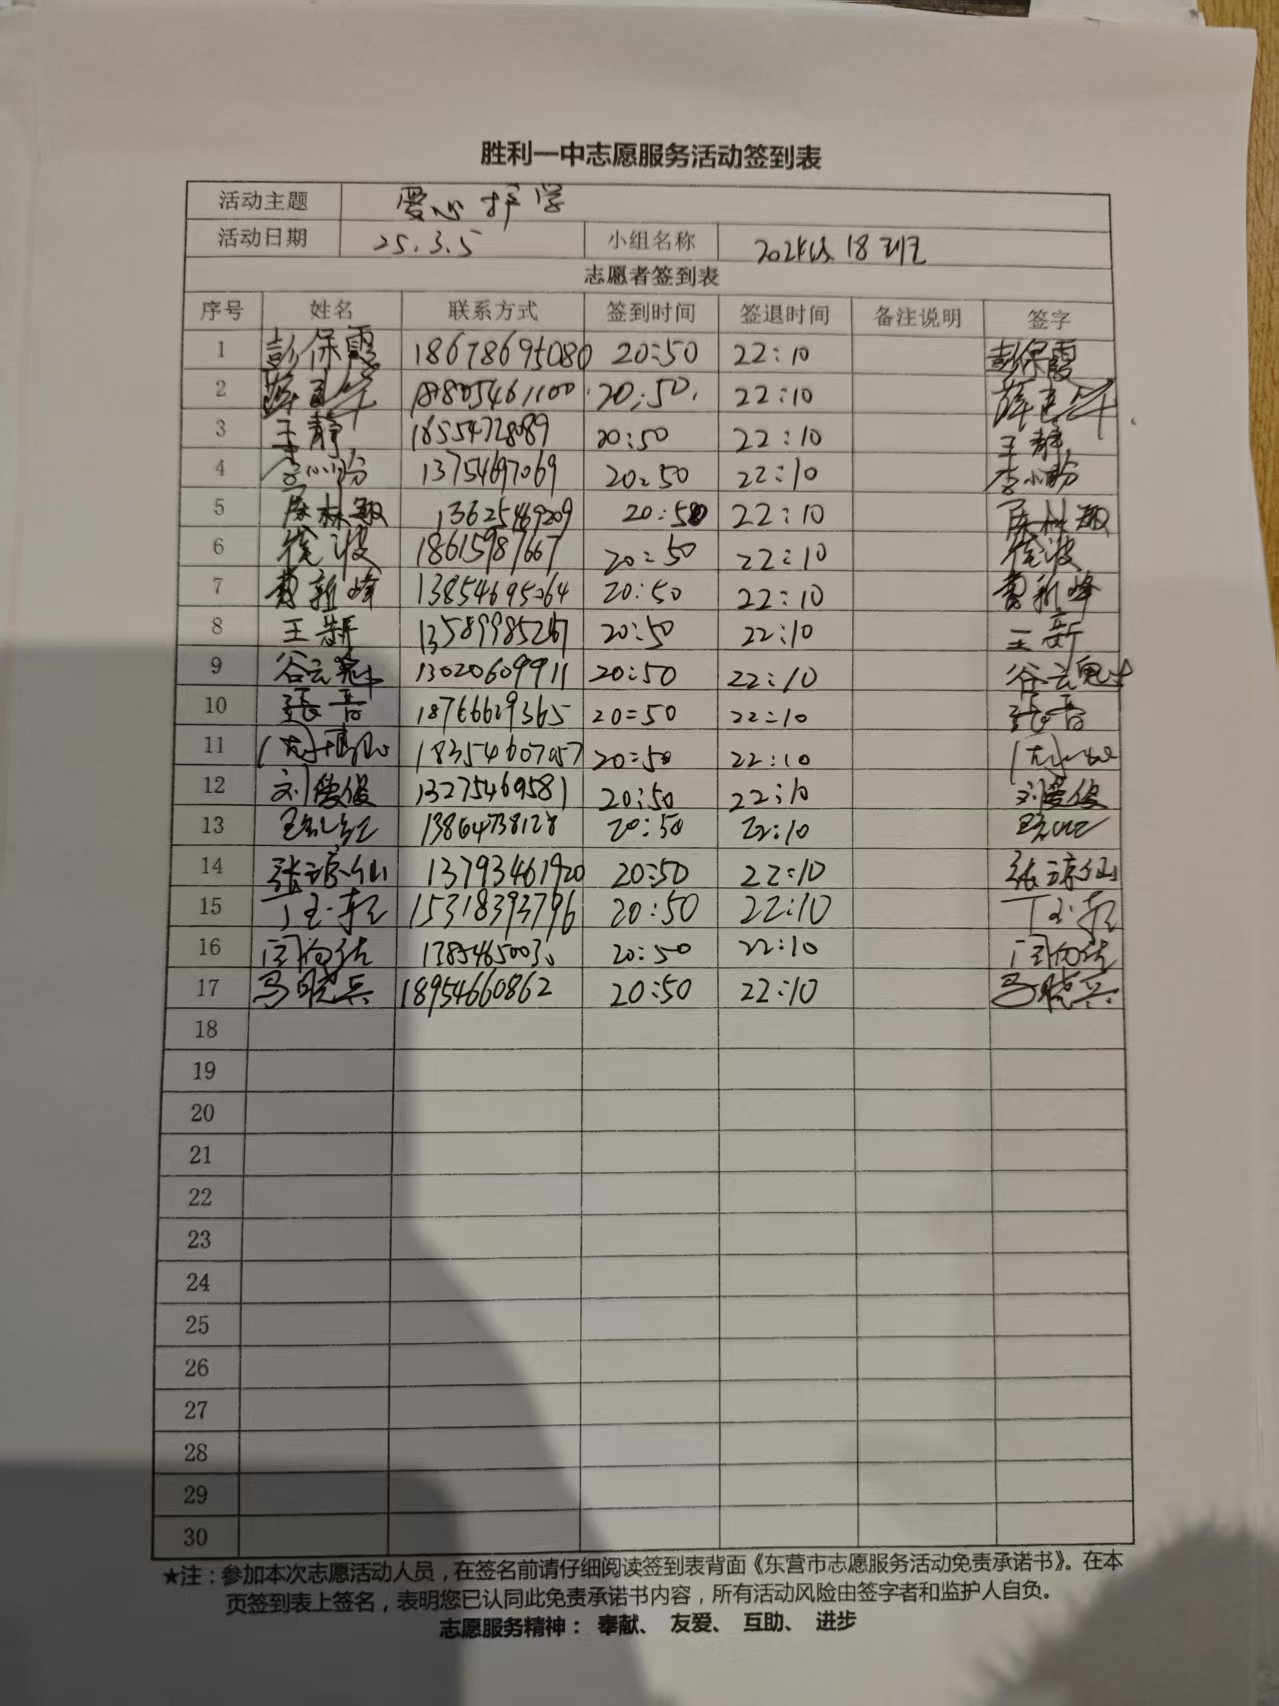 胜利一中志愿服务活动签到表
活动主题 爱心护学
活动日期 25.3.5 小组名称 2024级18班
志愿者签到表
序号 姓名 联系方式 签到时间 签退时间 备注说明 签字
1 彭保霞 18678695080 20:50 22:10 彭保霞
2 20:50. 22:10
3 王静 18554728089 20:50 22:10 王静
4 李小玲 13754697069 20:50 22:10 李小玲
5 20:50 22:10
6 徐波 18615987667 20:50 22:10 徐波
7 曹新峰 13854695064 20:50 22:10 曹新峰
8 王 13589985267 20:50 22:10 王
9 谷云 13020609911 20:50 22:10 谷云
10 张 18766629365 20:50 22:10 张
11 18354607057 20:50 22:10
12 刘俊 13275469581 20:50 22:10 刘俊
13 13864738128 20:50 22:10
14 张琼仙 13793461920 20:50 22:10 张琼仙
15 丁玉 15318393796 20:50 22:10 丁玉
16 20:50 22:10
17 马晓兵 18954660862 20:50 22:10 马晓兵
18
19
20
21
22
23
24
25
26
27
28
29
30
★注：参加本次志愿活动人员，在签名前请仔细阅读签到表背面《东营市志愿服务活动免责承诺书》。在本
页签到表上签名，表明您已认同此免责承诺书内容，所有活动风险由签字者和监护人自负。
志愿服务精神： 奉献、 友爱、 互助、 进步